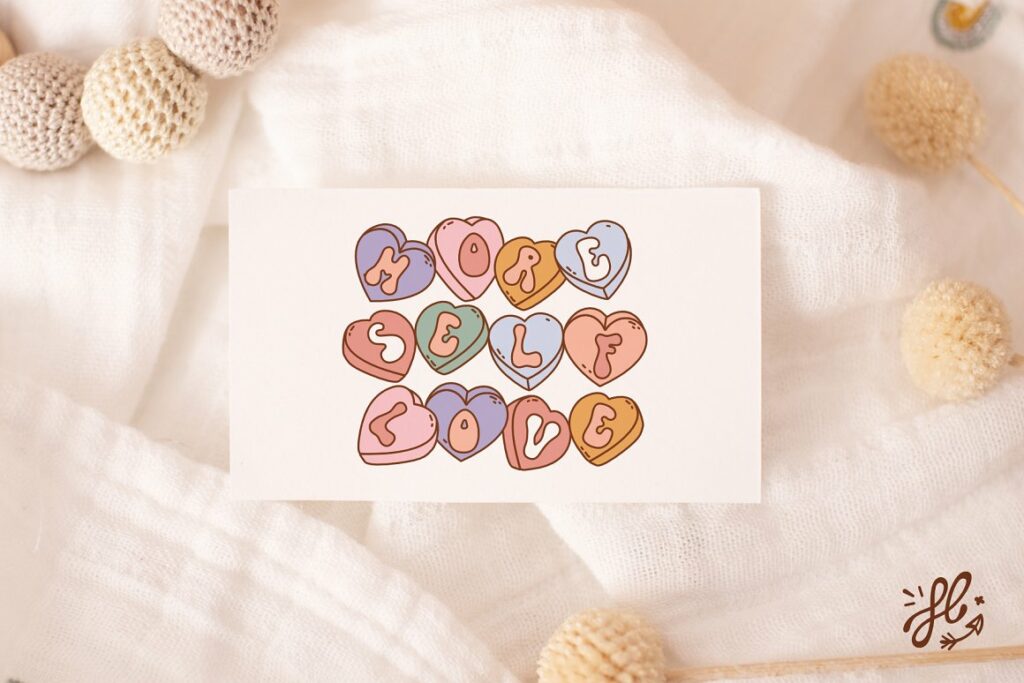 MORE
SELF
LOVE